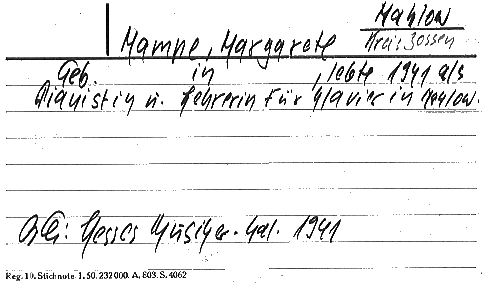 Mahlow
Hampe, Margarete Kreis Zossen
Geb. in , lebte 1941 als
Pianistin u. Lehrerin für Klavier in Mahlow.
Hesses Musiker-Kal. 1941
Reg. 10. Stichnote 1. 50. 232000. A. 803. S. 4062